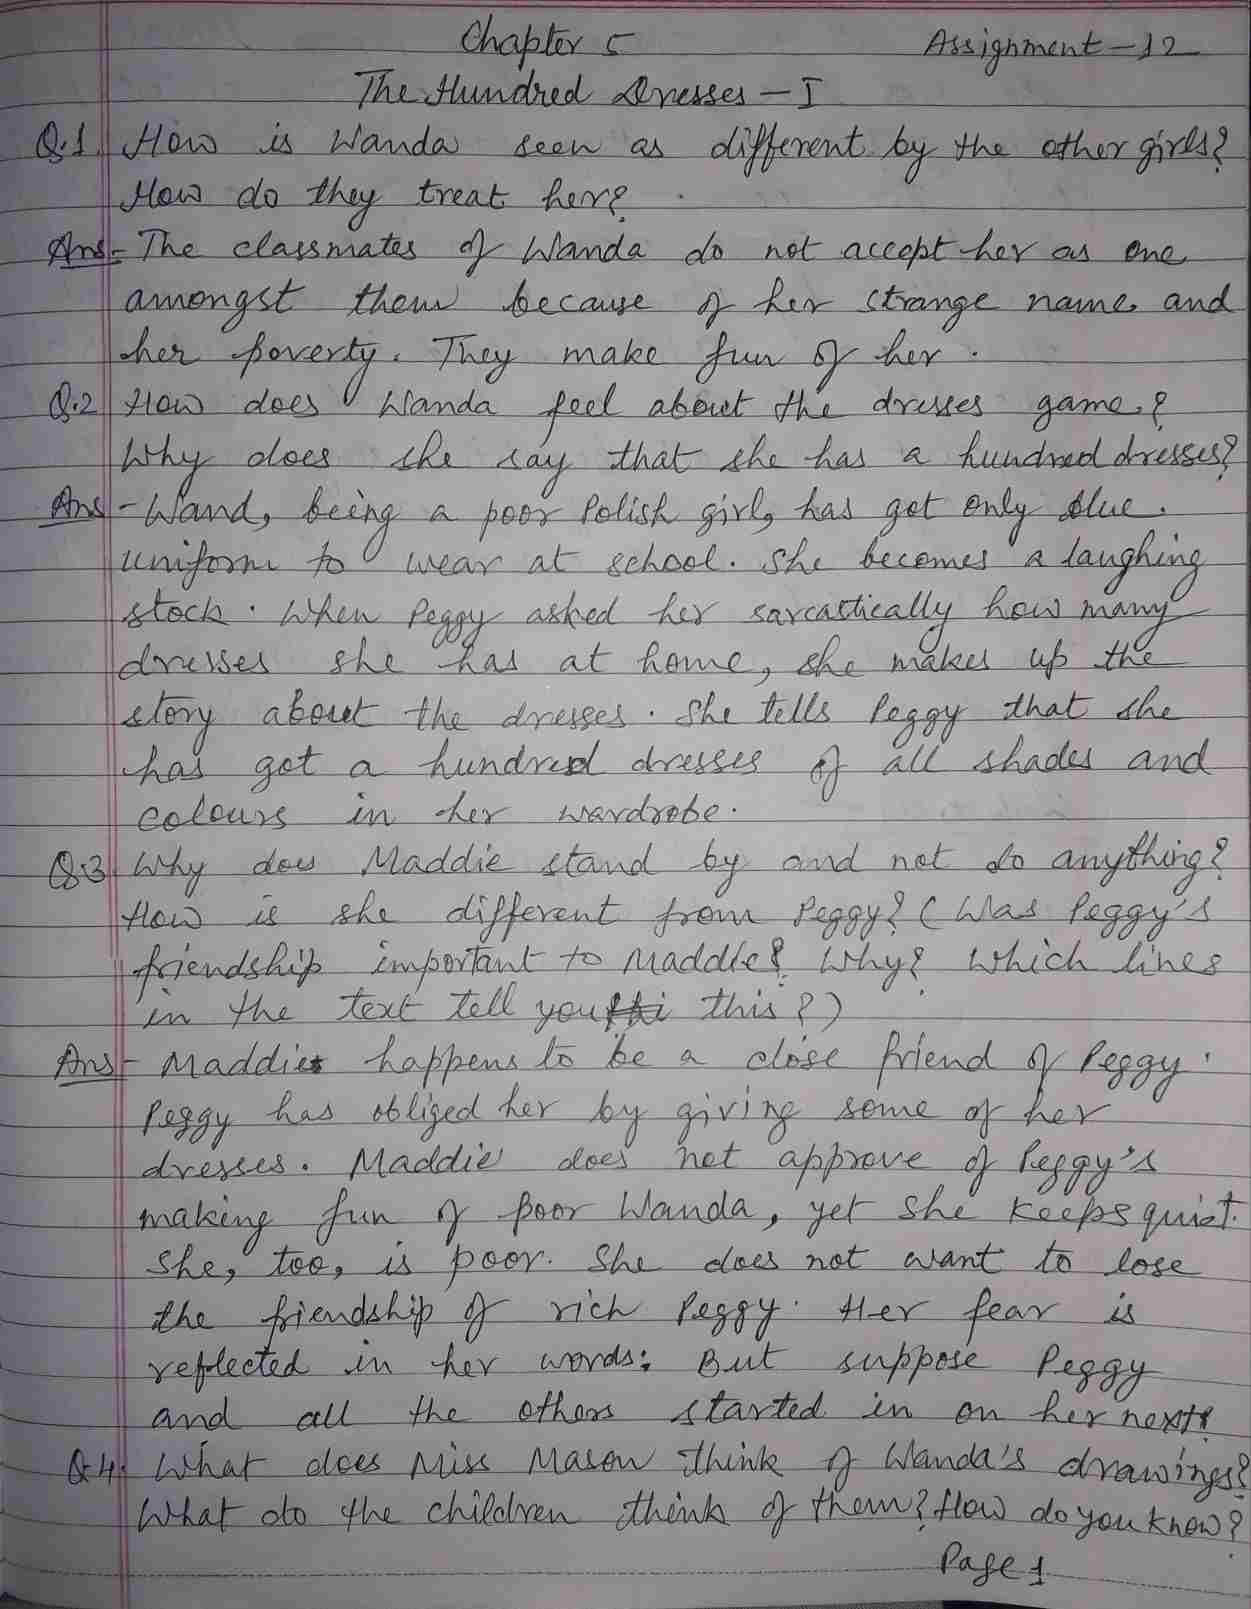 Chapter 5 Assignment-12
The Hundred Dresses - I
Q.1 How is Wanda seen as different by the other girls?
How do they treat her?
Ans- The classmates of Wanda do not accept her as one
amongst them because of her strange name and
her poverty. They make fun of her.
Q.2 How does Wanda feel about the dresses game?
Why does she say that she has a hundred dresses?
Ans- Wand, being a poor Polish girl, has got only blue
uniform to wear at school. She becomes a laughing
stock. When Peggy asked her sarcastically how many
dresses she has at home, she makes up the
story about the dresses. She tells Peggy that she
has got a hundred dresses of all shades and
colours in her wardrobe.
Q.3 Why does Maddie stand by and not do anything?
How is she different from Peggy? (Was Peggy's
friendship important to Maddie? Why? Which lines
in the text tell you this?)
Ans- Maddie happens to be a close friend of Peggy.
Peggy has obliged her by giving some of her
dresses. Maddie does not approve of Peggy's
making fun of poor Wanda, yet she keeps quiet.
She, too, is poor. She does not want to lose
the friendship of rich Peggy. Her fear is
reflected in her words: But suppose Peggy
and all the others started in on her next!
Q.4. What does Miss Mason think of Wanda's drawings?
What do the children think of them? How do you know?
Page 1